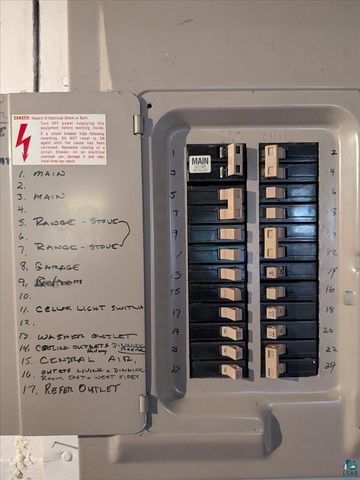 DANGER Hazard of Electrical Shock or Burn.
Turn OFF power supplying this
equipment before working inside.
If a circuit breaker trips following
resetting, DO NOT reset to ON
again until the cause has been
corrected.
MAIN
1. MAIN
2.
3. MAIN
4.
5. RANGE - STOVE
6.
7. RANGE - STOVE
8. GARAGE
9.
10.
11. CELLAR LIGHT SWITCH
12.
13. WASHER OUTLET
14. OUTLETS
15. CENTRAL AIR
16. OUTLETS LIVING & DINING
ROOM EAST & WEST SIDES
17. REFER OUTLET
1
3
5
7
9
11
13
15
17
19
21
2
4
6
8
10
12
14
16
18
20
22
24